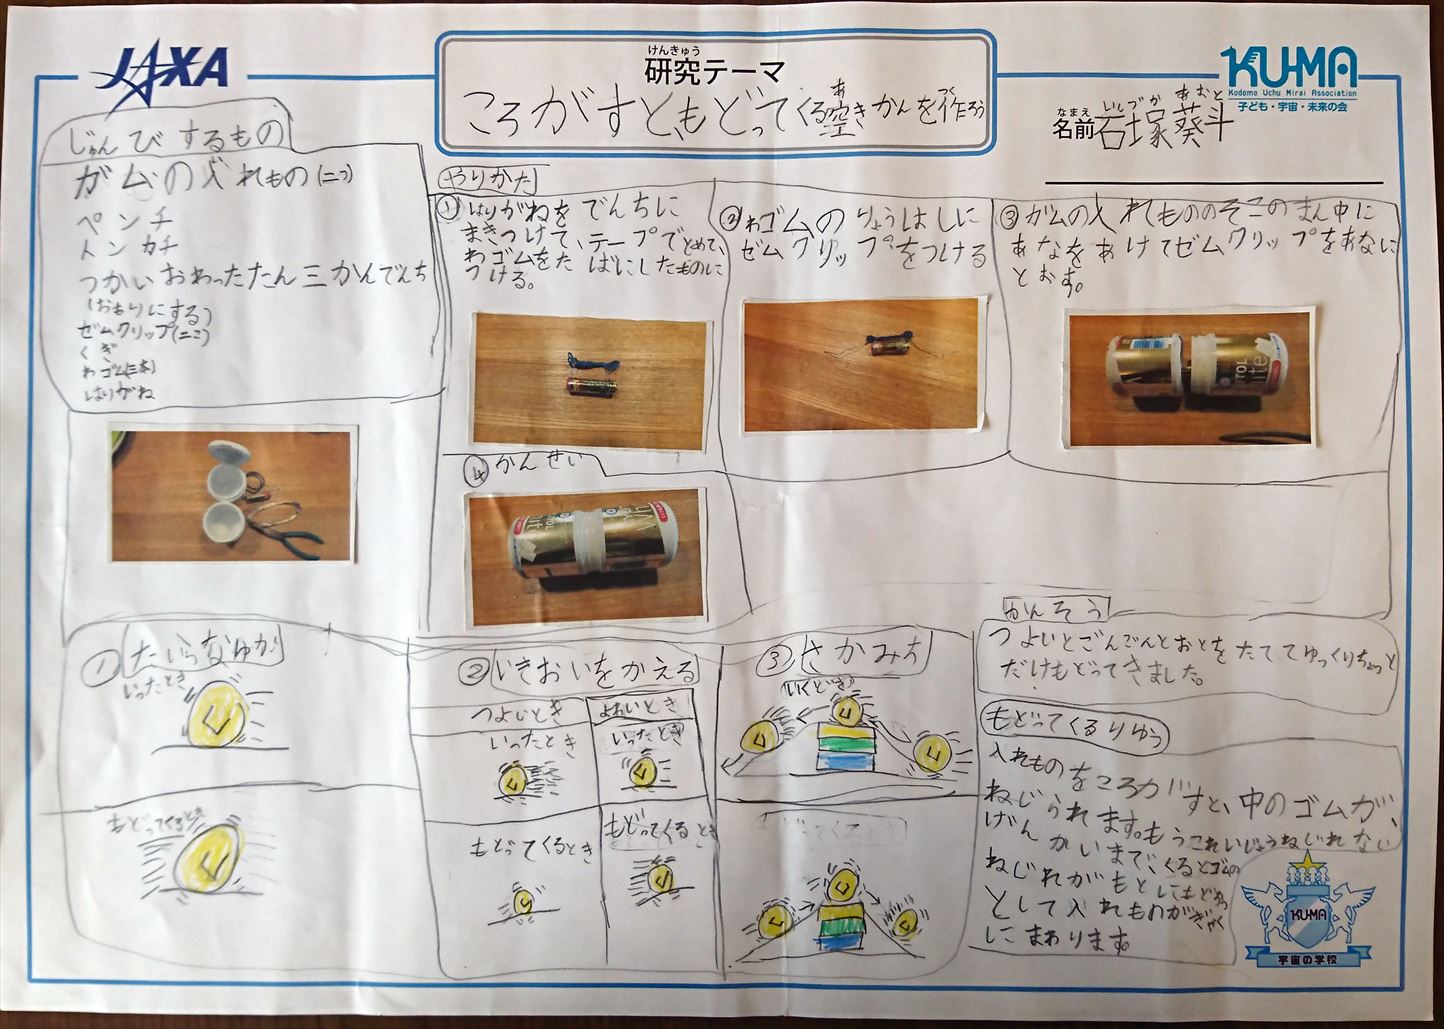 JAXA
けんきゅう
研究テーマ
ころがすともどってくる空きかんを作ろう
あ
つく
KU-MA
Kodomo Uchu Mirai Association
子ども・宇宙・未来の会
なまえ
名前
いしづか あおと
石塚葵斗
じゅんびするもの
ガムの入れもの(二つ)
ペンチ
トンカチ
つかいおわったたん三かんでんち
(おもりにする)
ゼムクリップ(二こ)
くぎ
わゴム(三本)
はりがね
やりかた
① はりがねをでんちに
まきつけて、テープでとめて、
わゴムをたばにしたものに
つける。
② わゴムのりょうはしに
ゼムクリップをつける
③ ガムの入れもののそこのまん中に
あなをあけてゼムクリップをあなに
とおす。
④ かんせい
① たいらなゆか
いったとき
もどってくるとき
② いきおいをかえる
つよいとき
よわいとき
いったとき
いったとき
もどってくるとき
もどってくるとき
③ さかみち
いくとき
もどってくるとき
かんそう
つよいとごんごんとおとをたててゆっくりちょっと
だけもどってきました。
もどってくるりゆう
入れものをころがすと、中のゴムが、
ねじられます。もうこれいじょうねじれない
げんかいまでくるとゴムの
ねじれがもとにもどろう
として入れものがぎゃく
にまわります。
KUMA
宇宙の学校